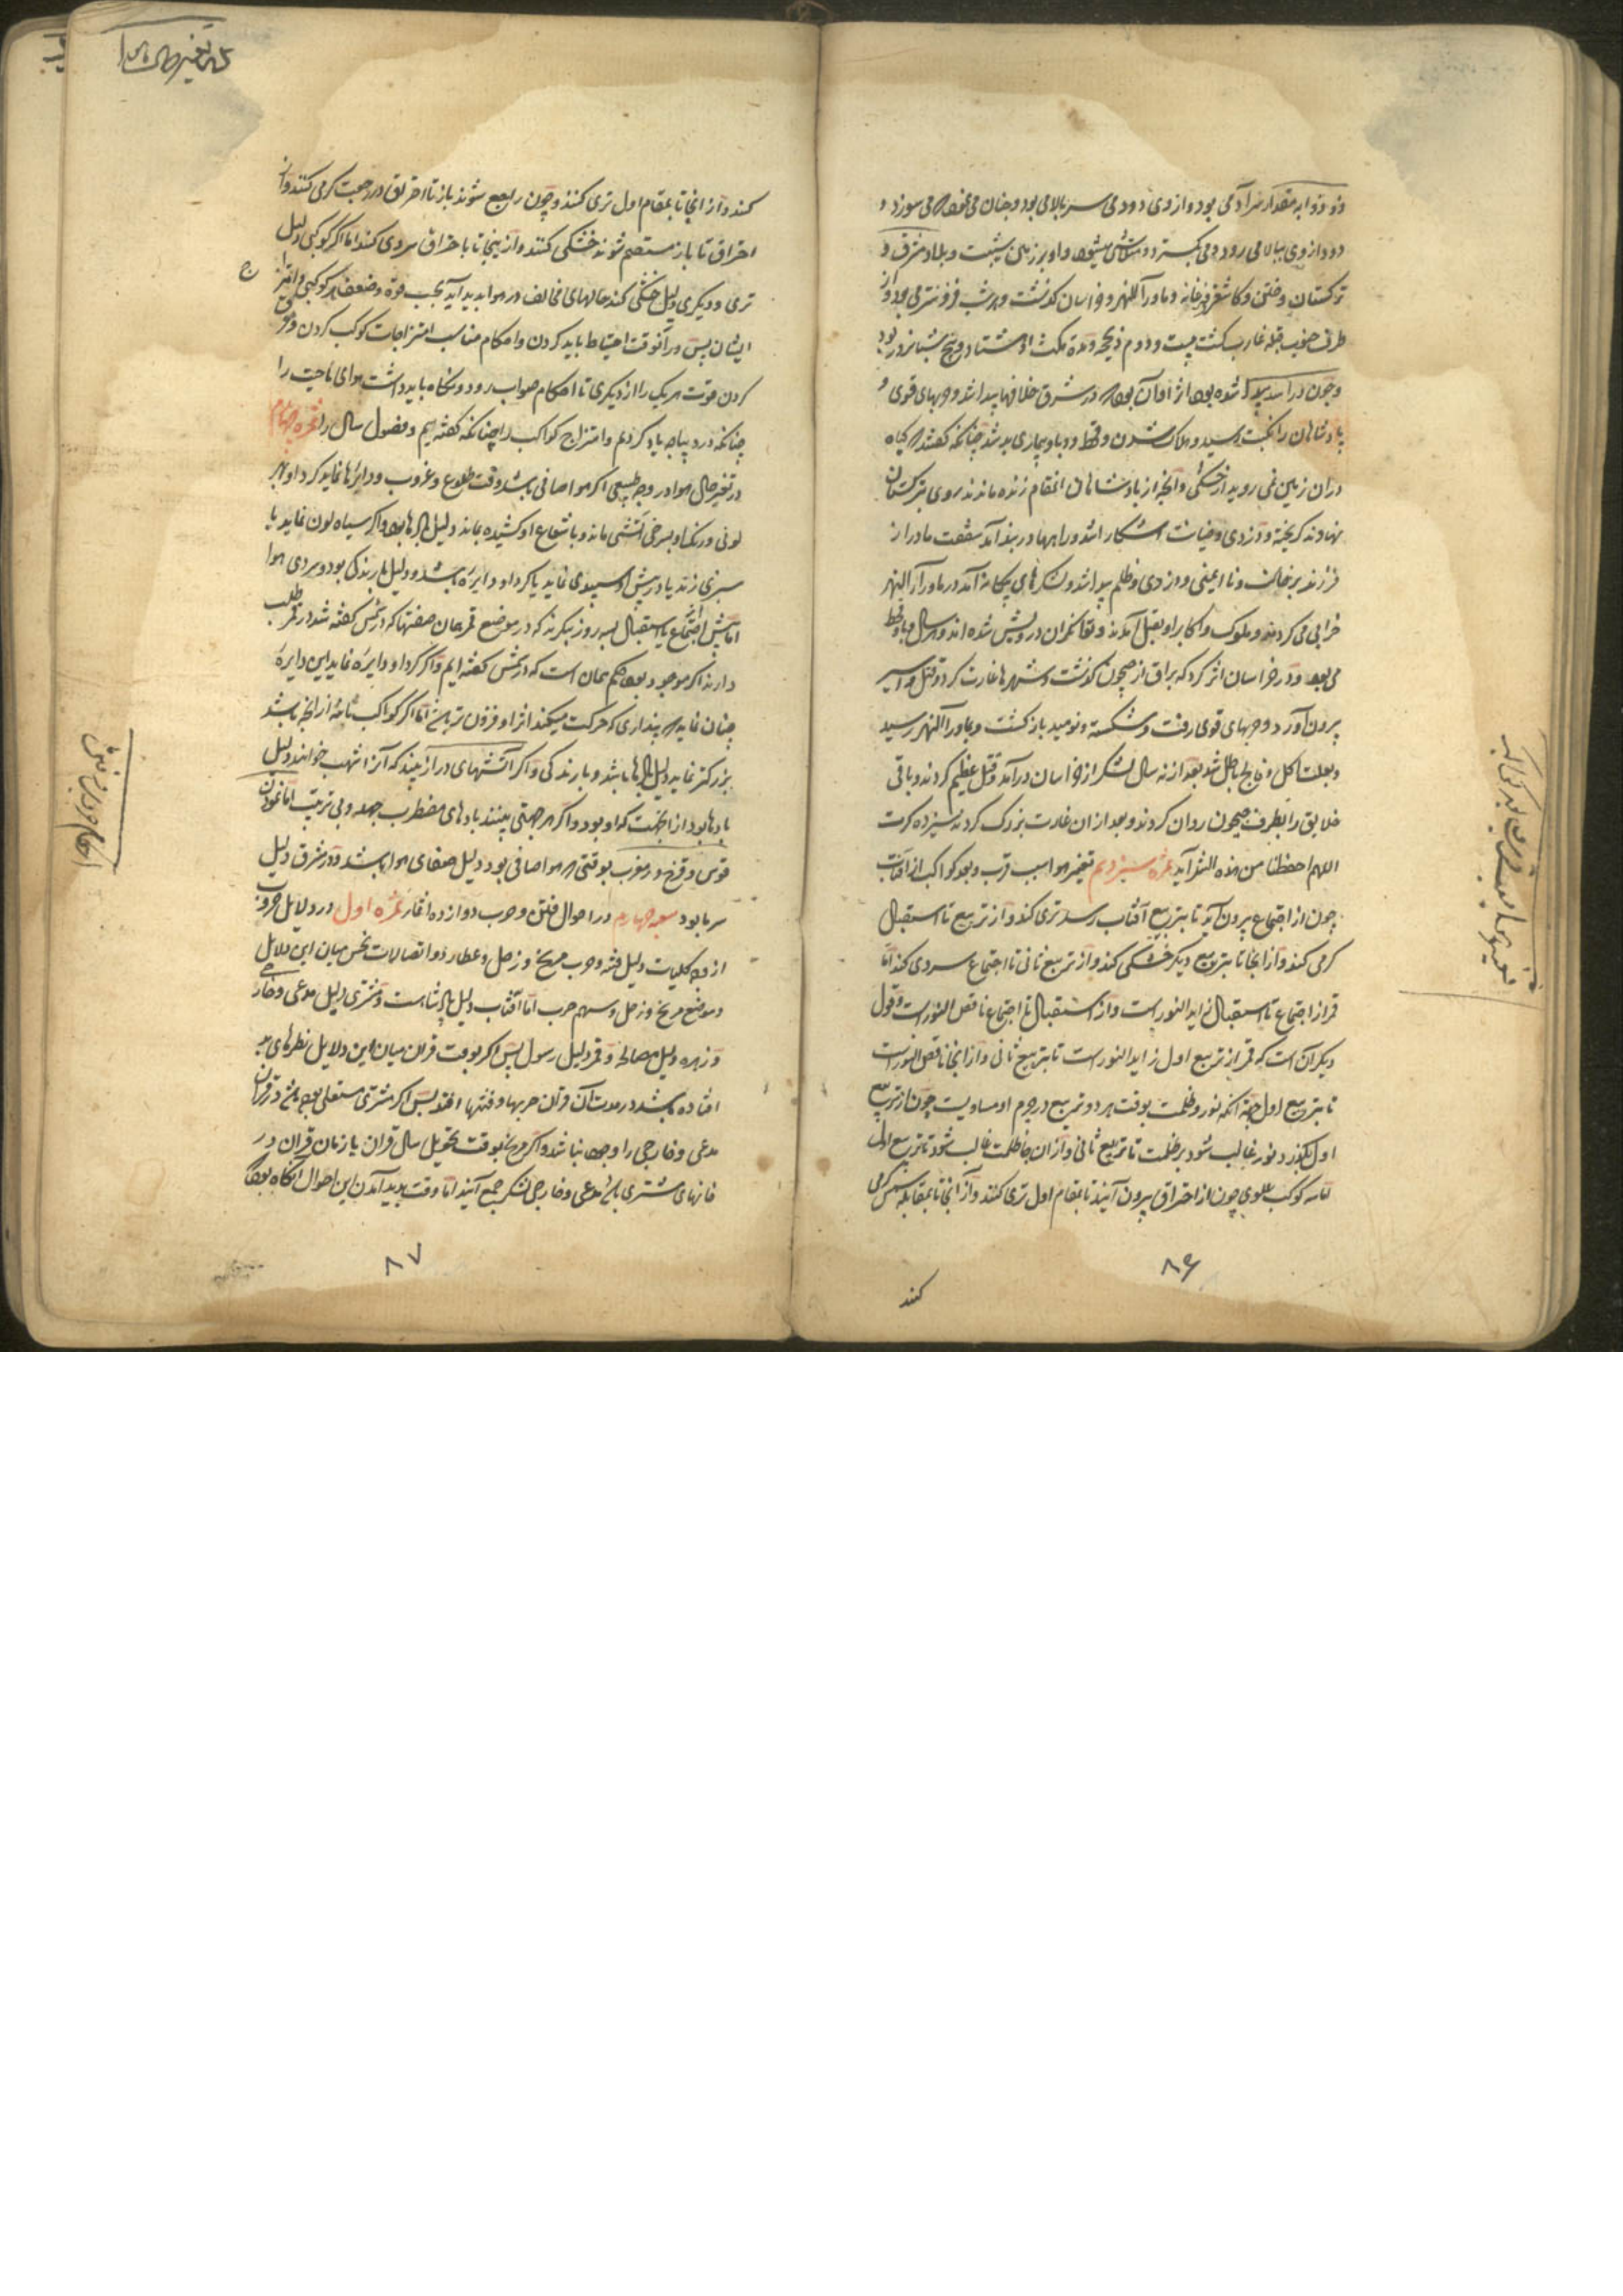 ذو ذوابه مقدار سر آدمی بود و از وی دودمی سر بالا می بود و چنان می نمود که می سوزد و
دود از وی ببالا می رود و می کسترد و متلاشی میشود و او بر زمین تبت و بلاد مشرق و
ترکستان و ختن و کاشغر و فرغانه و ماورآ النهر و خراسان کذشت و هر شب فزونتر می بود و از
طرف جنوب قبله غارب کشت بیست و دوم ذیحجه و مدة مکث او هشتاد و پنج شبانروز بود
و چون در اسد پیدا شده بود اثر او آن بود که در مشرق خلافها پیدا شد و حربهای قوی و
پادشاهان را نکبت رسید و هلاک شدن و قحط و وبا و بیماری بد شد چنانکه کفتند که کیاه
در ان زمین نمی روید از خشکی و آنچه از پادشاهان انمقام زنده ماندند روی بترکستان
نهادند کریخته و دزدی و خیانت آشکارا شد و راهها در بند آمد شفقت مادر از
فرزند برخاست و نا ایمنی و دزدی و ظلم پیدا شد و لشکرهای بیکانه آمد در ماورآ النهر
خرابی می کردند و ملوک و اکابر او بقتل آمدند و توانکران درویش شده اند و هر سال وبا و قحط
می بود و در خراسان اثر کرد که براق از جیحون کذشت و شهرها غارت کرد و قتل و اسیر
بیرون آورد و حربهای قوی رفت و شکسته و نومید باز کشت و بماورآ النهر رسید
و بعلت اکل و فالج باطل شد بعد از نه سال لشکر از خراسان در آمد و قتل عظیم کردند و باقی
خلایق را بطرف جیحون روان کردند و بعد از ان غارت بزرک کردند سیزده کرت
اللهم احفظنا من هذه ثمره سیزدهم تغییر هوا بسبب قرب و بعد کواکب از آفتاب
چون از اجتماع بیرون آید تا بتربیع آفتاب رسد تری کند و از تربیع تا استقبال
کرمی کند و از انجا تا بتربیع دیکر خشکی کند و از تربیع ثانی تا اجتماع سردی کند اما
قمر از اجتماع تا استقبال زاید النور است و از استقبال تا اجتماع ناقص النور است و قول
دیکر ان است که قمر از تربیع اول زاید النور است تا بتربیع ثانی و از انجا ناقص النور است
تا بتربیع اول جهة انکه نور و ظلمت بوقت هر دو تربیع در جرم او مساویست چون از تربیع
اول بکذرد نور غالب شود بر ظلمت تا تربیع ثانی و از ان جا ظلمت غالب شود تا تربیع اول
اما سه کوکب علوی چون از احتراق بیرون آیند تا بمقام اول تری کنند و از انجا تا بمقابله شمس کرمی
۸۶
کند
کنند و از انجا تا بمقام اول تری کنند و چون راجع شوند باز تا احتراق در رجعت کرمی کنند و از
احتراق تا باز مستقیم شوند خشکی کنند و از ینجا تا با حتراق سردی کند اما اکر کوکبی دلیل
تری و دیکری دلیل خشکی کند حالهای مخالف در هوا بدید آید بحسب قوة و ضعف هر کوکبی و امتزاج
ایشان پس در آنوقت احتیاط باید کردن و احکام مناسب امتزاجات کوکب کردن و
کردن قوت هر یک را از دیکری تا احکام صواب رود و نکاه باید داشت هوای ناحیت را
چنانکه در دیباچه یاد کردیم و امتزاج کواکب را چنانکه کفته ایم و فصول سال را ثمره چهاردهم
در تغییر حال هوا در وجه طبیعی اکر هوا صافی باشد وقت طلوع و غروب و دایرها نماید کرد او بهر
لونی و رنک او بسرخی آتشی ماند و با شعاع او کشیده بماند دلیل بادها بود و اکر سیاه لون نماید با
سبزی زند یا در پیش او سپیدی نماید یا کرد او دایره باشد دلیل بارندکی بود و سردی هوا
اما پیش اجتماع یا استقبال بسه روز بنکرند که در موضع قمر همان صفتها که در شمس کفته شد در قمر طلب
دارند اکر موجود بود حکم همان است که در شمس کفته ایم و اکر کرد او دایره نماید این دایره
چنان نماید که پنداری که حرکت میکند اثر او فزون تر باشد اما اکر کواکب ثابته از انچه باشد
بزرکتر نماید دلیل بادها باشد و بارندکی و اکر آتشهای دراز بیند که آنرا شهب خوانند دلیل
بادها بود از انجهت که او بود و اکر هر جهتی بینند بادهای مضطرب جهد و بی ترتیب اما نمودن
قوس و قزح در مغرب بوقتی که هوا صافی بود دلیل صفای هوا باشد و در مشرق دلیل
سرما بود سعبه چهارم در احوال فتن و حرب دوازده ثمره اول در دلایل حروب
از وجه کلیات دلیل فتنه و حرب مریخ و زحل و عطارد و اتصالات نحس میان این دلایل
و موضع مریخ و زحل و سهم حرب اما آفتاب دلیل پادشاهست و مشتری دلیل مدعی و خارجی
و زهره دلیل مصالحة و قمر دلیل رسول پس اکر بوقت قران میان این دلایل نظرهای بد
افتاده باشد در مدت آن قران حربها و فتنها افتد پس اکر مشتری مستعلی بود بر مریخ در قران
مدعی و خارجی را وجود نباشد و اکر مریخ بوقت تحویل سال قران یا زمان قران در
خانهای مشتری باشد مدعی و خارجی لشکر جمع آیند اما وقت بدید آمدن این احوال آنکاه بود که
۸۷
احکام حرب و فتن